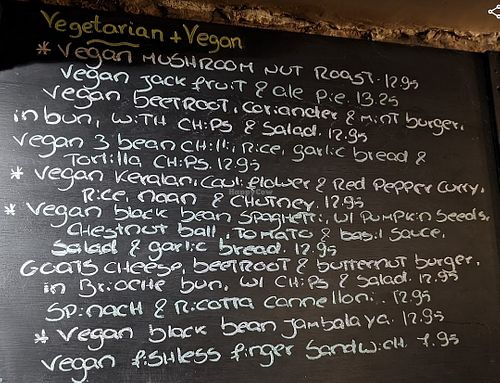 Vegetarian + Vegan
* Vegan MUSHROOM NUT ROAST. 12.95
Vegan Jack fruit & ale Pie. 13.25
Vegan BEETROOT, coriander & Mint burger,
in bun, WITH CHiPS & Salad. 12.95
Vegan 3 bean CHilli, Rice, garlic bread &
Tortilla CHiPS. 12.95
* Vegan Keralan, Cauliflower & Red Pepper Curry,
Rice, naan & CHutney. 12.95
* Vegan black bean SPagHetti, W/ PumPkin Seeds,
CHestnut ball, Tomato & basil Sauce,
Salad & garlic bread. 12.95
GOATS CHeese, beetROOT & butternut burger,
in BRiOCHe bun, W/ CHiPS & Salad. 12.95
SPinacH & Ricotta cannelloni. 12.95
* Vegan black bean Jambalaya. 12.95
Vegan fiSHless finger Sandwich. 7.95
HappyCow